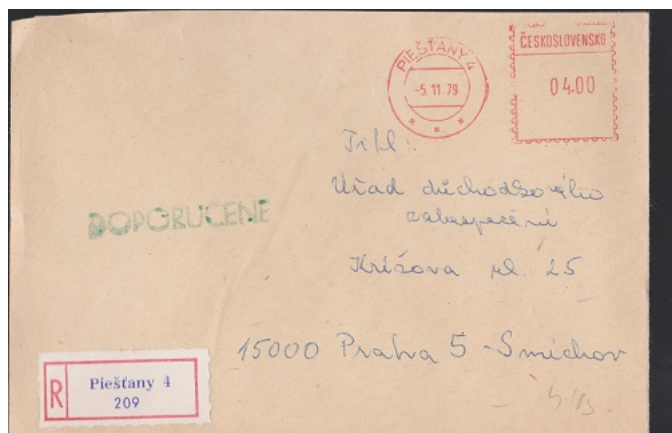 PIEŠŤANY 4
-5.11.79
ČESKOSLOVENSKO
04.00
Úřad důchodového
zabezpečení
Křížova ul. 25
15000 Praha 5 - Smíchov
DOPORUČENE
R
Piešťany 4
209